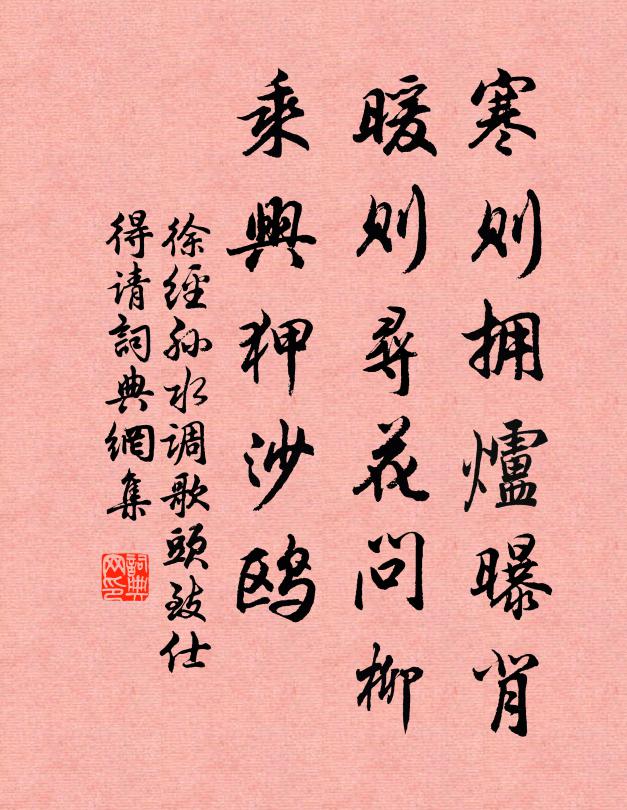 寒则拥爐曝背
暖则尋花问柳
乘興狎沙鸥
徐經孙水调歌頭致仕
得请詞典網集
詞典网印